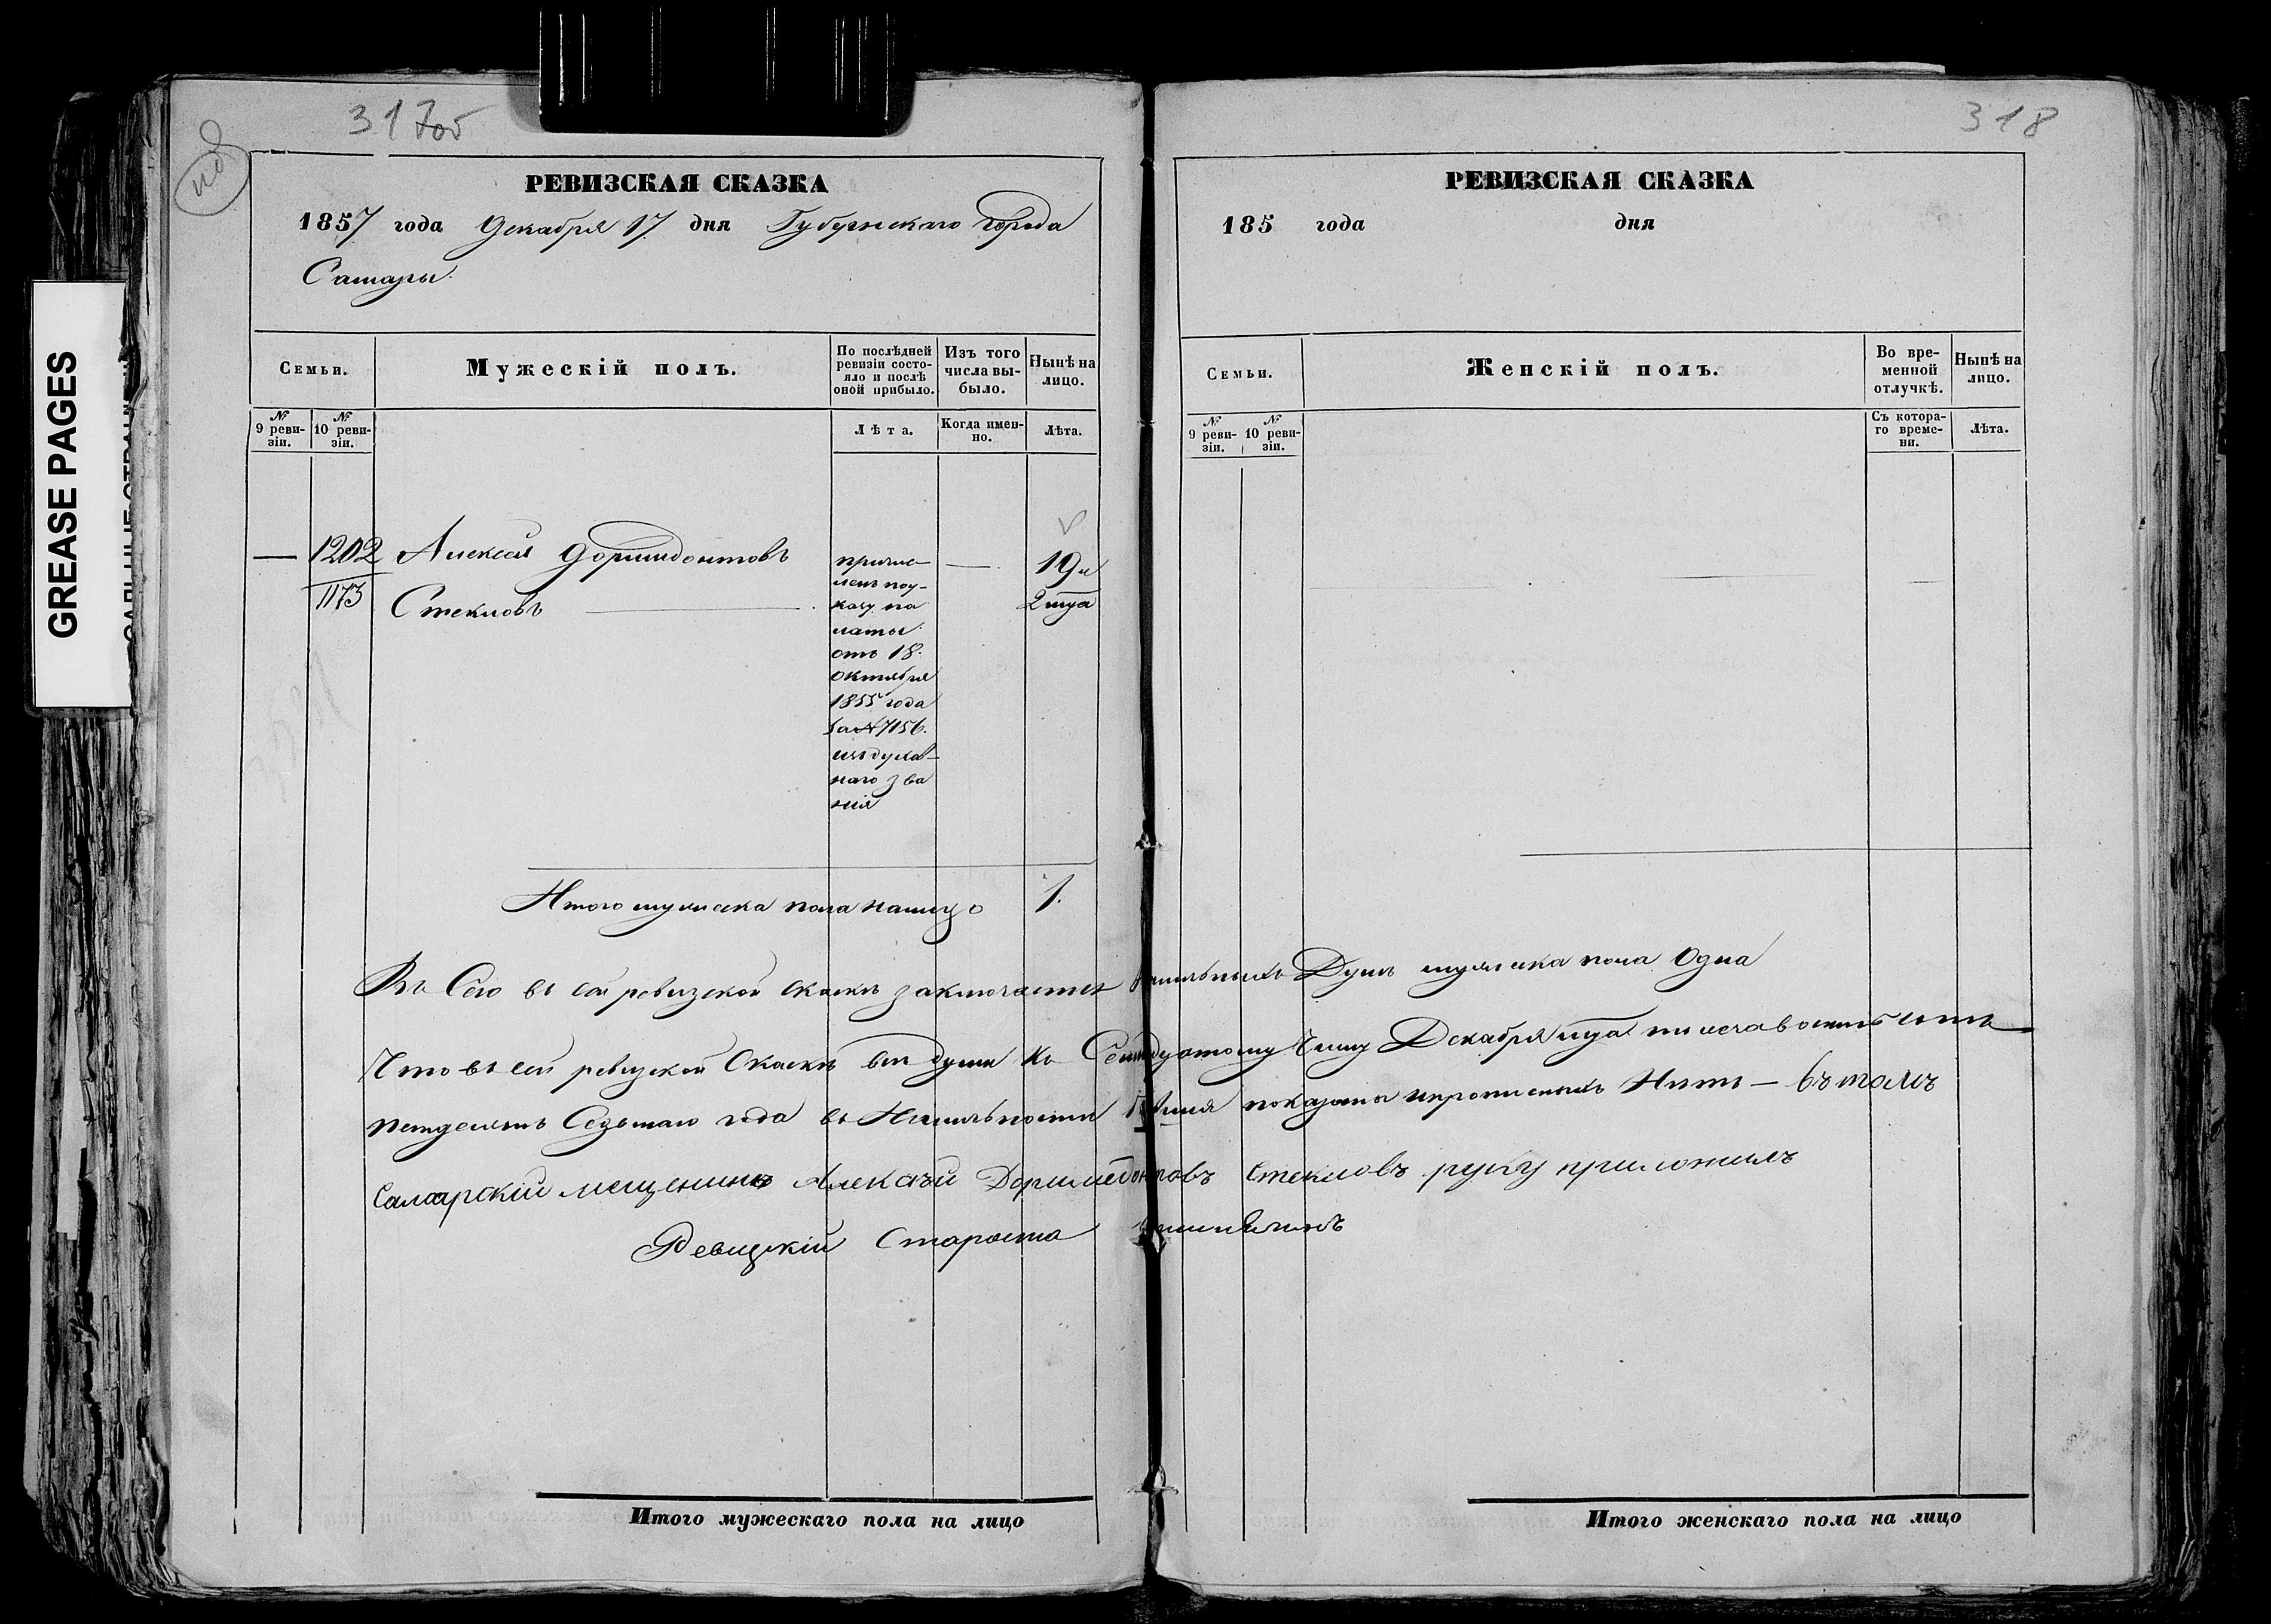 317об
318
GREASE PAGES
РЕВИЗСКАЯ СКАЗКА
1857 года Декабря 17 дня Губернскаго города
Самары.
Семьи.
Мужескій полъ.
По послѣдней ревизіи состояло и послѣ оной прибыло.
Изъ того числа выбыло.
Нынѣ на лицо.
№ 9 ревизіи.
№ 10 ревизіи.
Лѣта.
Когда именно.
Лѣта.
— 1202 Алексей Доримидонтовъ — 19 и
1173 Стекловъ 2 м-ца
причис-
ленъ по у-
казу па
латы
отъ 18.
октября
1855 года
за № 7156.
изъ духов-
наго зва
нія
Итого мужеска пола налицо 1.
РЕВИЗСКАЯ СКАЗКА
185 года дня
Семьи.
Женскій полъ.
Во временной отлучкѣ.
Нынѣ на лицо.
№ 9 ревизіи.
№ 10 ревизіи.
Съ котораго времени.
Лѣта.
Въ сего въ сей ревизской скаскѣ заключается душъ мужеска пола одна
Что въ сей ревизской скаскѣ все души къ Декабря м-ца тысяча восемьсотъ
петдесятъ седьмаго года въ показаны и прописныхъ нѣтъ — въ томъ
Самарскій мещенинъ Алексѣй Доримедонтовъ Стекловъ руку приложилъ
Ревизскій Староста
Итого мужескаго пола на лицо
Итого женскаго пола на лицо